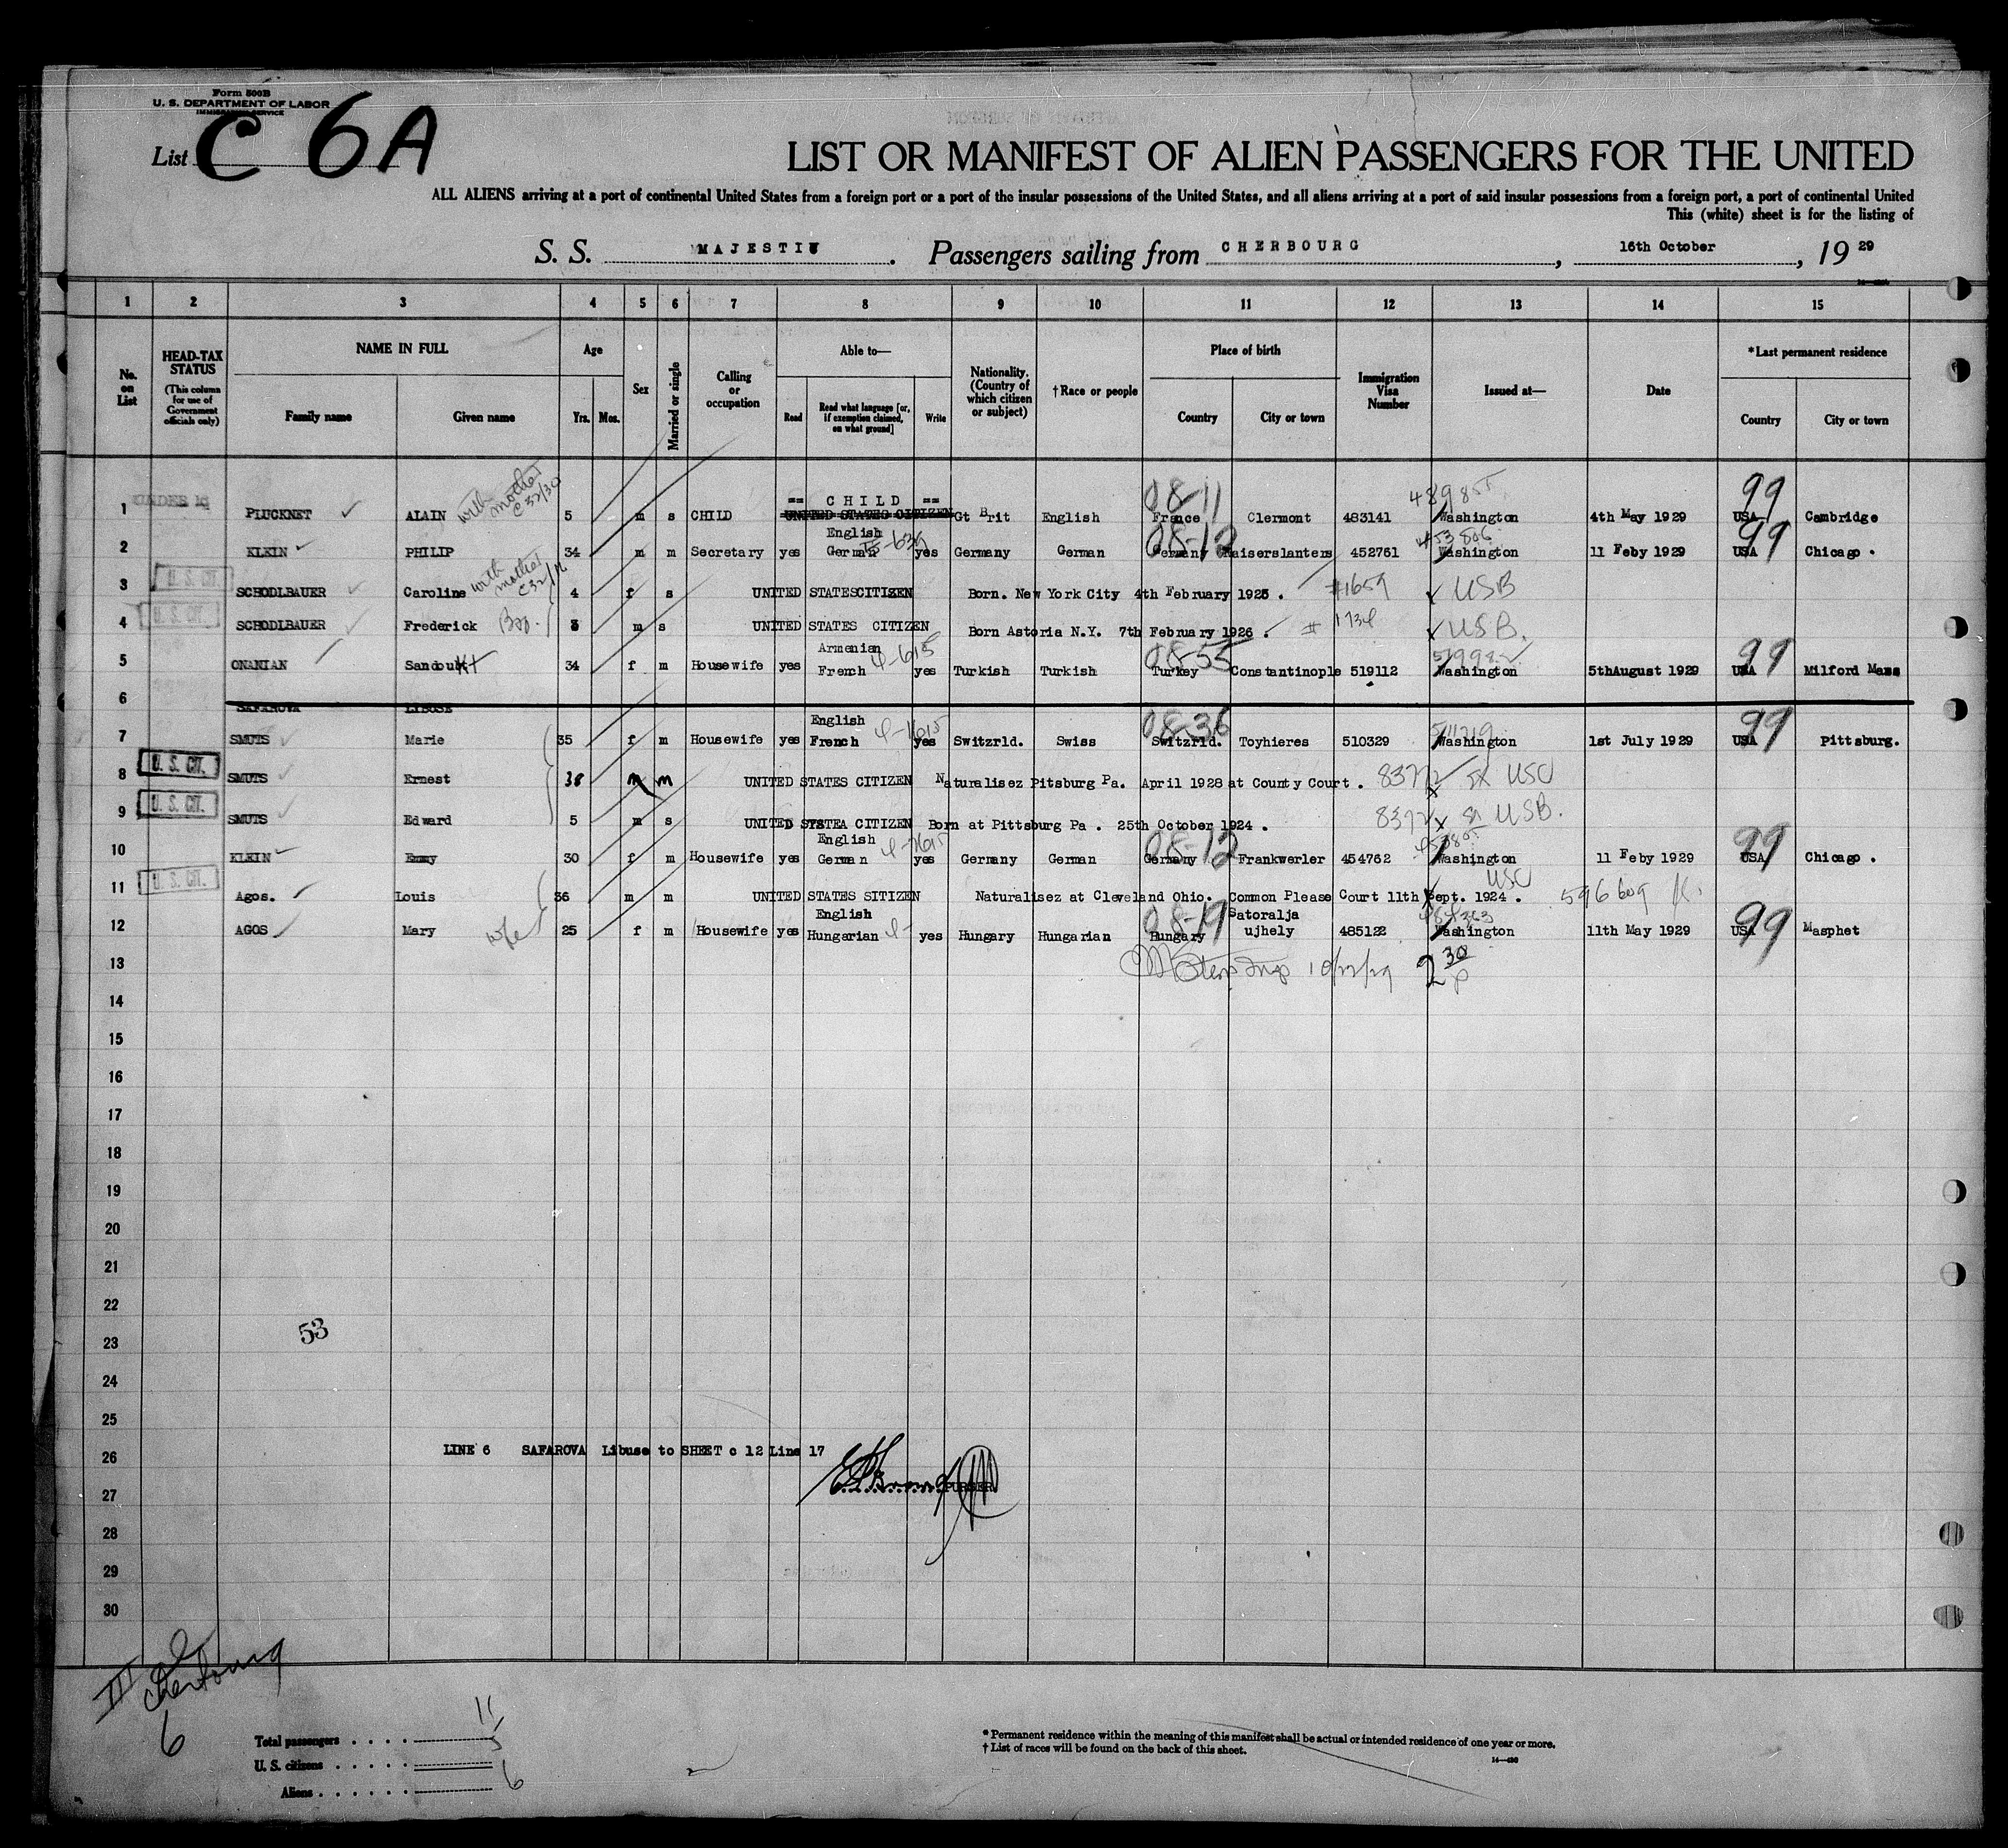 Form 500B
U. S. DEPARTMENT OF LABOR
IMMIGRATION SERVICE
List C 6A
LIST OR MANIFEST OF ALIEN PASSENGERS FOR THE UNITED
ALL ALIENS arriving at a port of continental United States from a foreign port or a port of the insular possessions of the United States, and all aliens arriving at a port of said insular possessions from a foreign port, a port of continental United
This (white) sheet is for the listing of
S. S. MAJESTIC . Passengers sailing from CHERBOURG , 16th October , 19 29
1 2 3 4 5 6 7 8 9 10 11 12 13 14 15
No. on List
HEAD-TAX STATUS
(This column for use of Government officials only)
NAME IN FULL
Family name Given name
Age
Yrs. Mos.
Sex
Married or single
Calling or occupation
Able to—
Read Read what language [or, if exemption claimed, on what ground] Write
Nationality. (Country of which citizen or subject)
†Race or people
Place of birth
Country City or town
Immigration Visa Number
Issued at—
Date
*Last permanent residence
Country City or town
with mother C32/30
== CHILD == 08-11 99
1 UNDER 16 PLUCKNET ALAIN 5 m s CHILD UNITED STATES CITIZEN Gt Brit English France Clermont 483141 Washington 4th May 1929 USA Cambridge
English 08-12 453806 99
2 KLEIN PHILIP 34 m m Secretary yes German yes Germany German Germany Kaiserslantern 452761 Washington 11 Feby 1929 USA Chicago .
with mother
3 U. S. CIT. SCHODLBAUER Caroline 4 f s UNITED STATESCITIZEN Born. New York City 4th February 1925 . #1659 USB
4 U. S. CIT. SCHODLBAUER Frederick Bro. 3 m s UNITED STATES CITIZEN Born Astoria N.Y. 7th February 1926 . # 1734 USB.
Armenian 08-55 99
5 ONANIAN Sandoukt 34 f m Housewife yes French yes Turkish Turkish Turkey Constantinople 519112 Washington 5thAugust 1929 USA Milford Mass
6 SAFAROVA LIBUSE
English 08-36 99
7 SMUTS Marie 35 f m Housewife yes French yes Switzrld. Swiss Switzrld. Toyhieres 510329 Washington 1st July 1929 USA Pittsburg.
8 U. S. CIT. SMUTS Ernest 38 m m UNITED STATES CITIZEN Naturalisez Pitsburg Pa. April 1928 at County Court . USC
9 U. S. CIT. SMUTS Edward 5 m s UNITED SYSTEA CITIZEN Born at Pittsburg Pa . 25th October 1924 . USB.
English 08-12 99
10 KLEIN Emmy 30 f m Housewife yes German yes Germany German Germany Frankwerler 454762 Washington 11 Feby 1929 USA Chicago .
11 U. S. CIT. Agos. Louis 36 m m UNITED STATES SITIZEN Naturalisez at Cleveland Ohio. Common Please Court 11th Sept. 1924 . USC 596609
English 08-19 Satoralja 99
12 AGOS Mary wife 25 f m Housewife yes Hungarian yes Hungary Hungarian Hungary ujhely 485122 Washington 11th May 1929 USA Masphet
13 10/22/29 2 30 p
14
15
16
17
18
19
20
21
22
23 53
24
25
26 LINE 6 SAFAROVA Libuse to SHEET c 12 Line 17
27 PURSER
28
29
30
III Cherbourg
6
Total passengers . . . . 11
U. S. citizens . . . . . 5
Aliens . . . . . . 6
* Permanent residence within the meaning of this manifest shall be actual or intended residence of one year or more.
† List of races will be found on the back of this sheet.